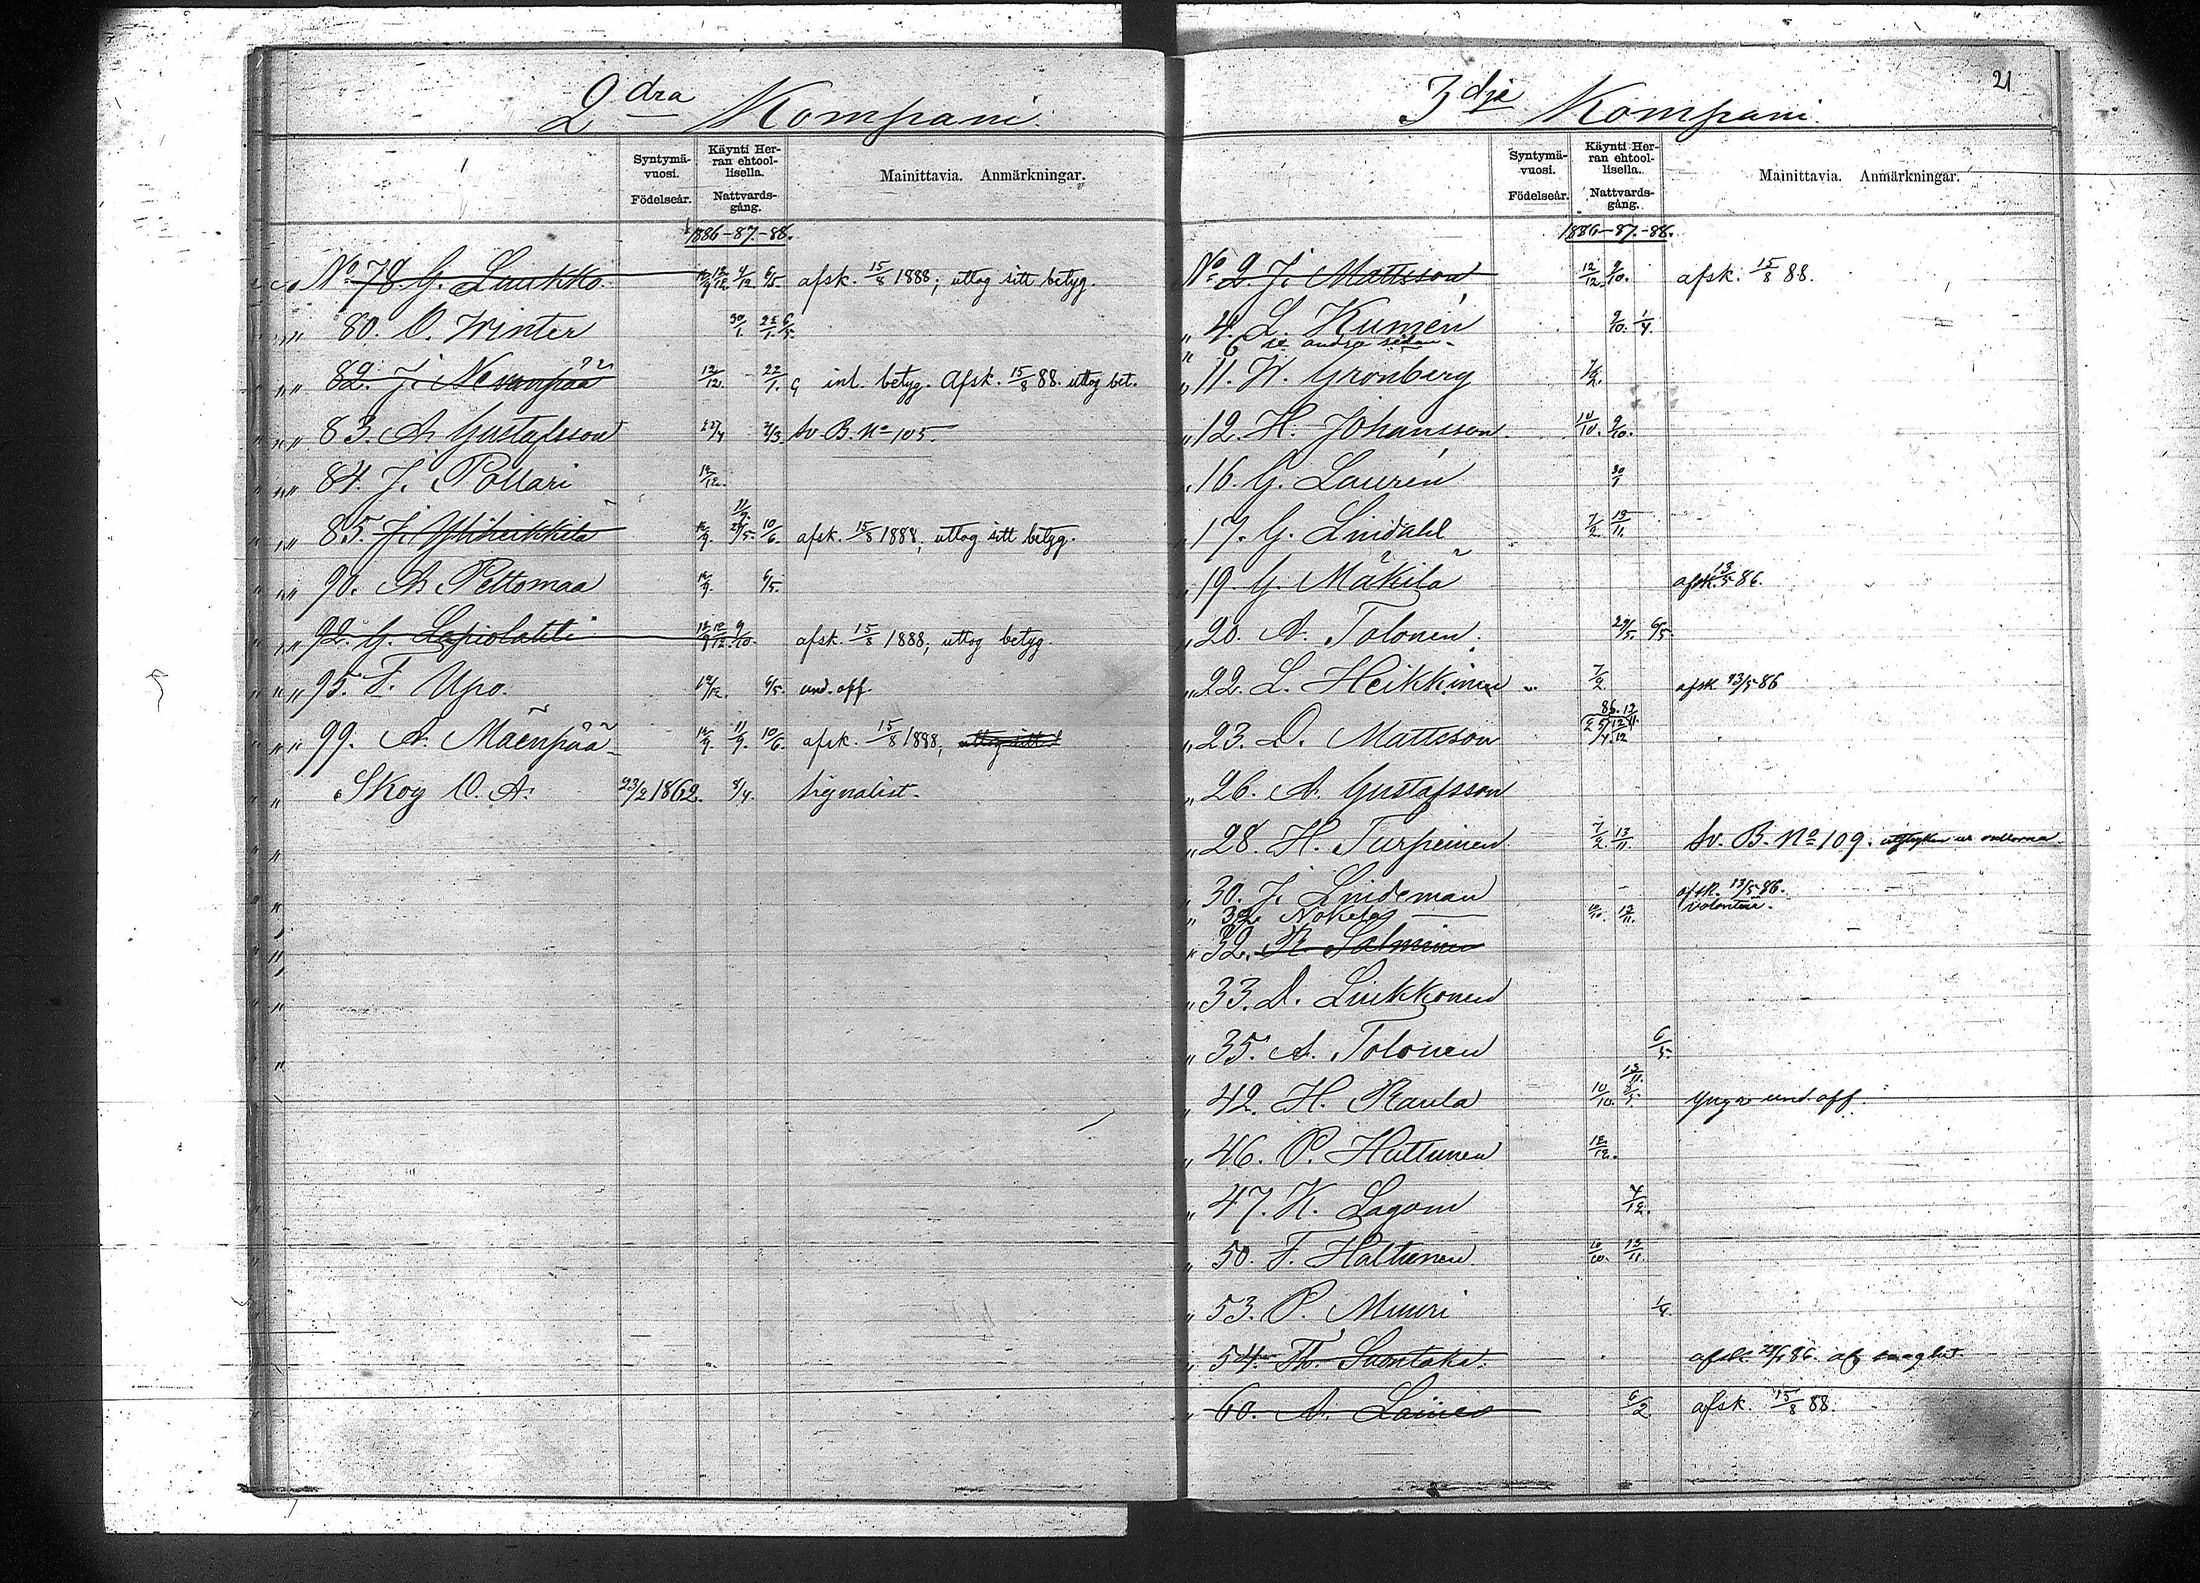 2dra Kompani.
Syntymä-
vuosi.
Födelseår.
Käynti Her-
ran ehtool-
lisella.
Nattvards-
gång.
Mainittavia. Anmärkningar.
1886-87.-88.
No 78 G. Luukko. 12/9 12/12 4/12 6/5 afsk. 15/8 1888; uttog sitt betyg.
"" 80. O. Winter 30/1 22/1. 6/5.
"" 82. J. 12/12. 22/1. inl. betyg. Afsk. 15/8 88. uttog bet.
"" 83. A. Gustafsson 27/4 2/3 Sv. B. No 105.
"" 84. J. Pollari 12/12.
11/9.
"" 85. J. Yliheikkilä 12/9. 29/5. 10/6. afsk. 15/8 1888, uttog sitt betyg.
"" 90. A. Peltomaa 12/9. 6/5.
"" 92. G. Lapiolahti 12/9 12/12. 9/10. afsk. 15/8 1888, uttog betyg.
"" 95. F. Upo. 12/12. 6/5. und. off.
"" 99. A. Mäenpää 12/9 11/9. 10/6. afsk. 15/8 1888,
" Skog O. A. 23/2 1862. 8/4. Signalist.
21
3dje Kompani.
Syntymä-
vuosi.
Födelseår.
Käynti Her-
ran ehtool-
lisella.
Nattvards-
gång.
Mainittavia. Anmärkningar.
1886-87.-88.
No 2. J. Mattsson 12/12. 9/10. afsk. 15/8 88.
" 4. L. Kumén 9/10. 1/4.
" 6 se andra sidan.
" 11. W. Grönberg 7/2.
" 12. H. Johansson. 10/10. 9/10.
" 16. G. Laurén 30/1
" 17. G. Lindahl 7/2 13/11.
" 19. G. Mäkilä afsk. 13/5 86.
" 20. A. Tolonen. 29/5. 6/5.
" 22. L. Heikkinen 7/2 afsk 13/5 86
" 23. D. Mattsson
" 26. A. Gustafsson
" 28. H. Turpeinen 7/2. 13/11. Sv. B. No 109.
" 30. J. Lindeman afsk. 13/5 86.
" 32. 10/10. 13/11. volontär.
" 32. R. Salminen
" 33. D. Liukkonen
" 35. A. Tolonen 6/5.
13/11.
" 42. H. Raula 10/10. 8/5. yngre und. off.
" 46. P. Huttunen 12/12.
" 47. K. Lagom 4/12.
" 50. F. Halttunen. 10/10. 13/11.
" 53. P. Muuri 1/4.
" 54. Th. afsk.
" 60. A. Laine 6/2 afsk. 15/8 88.